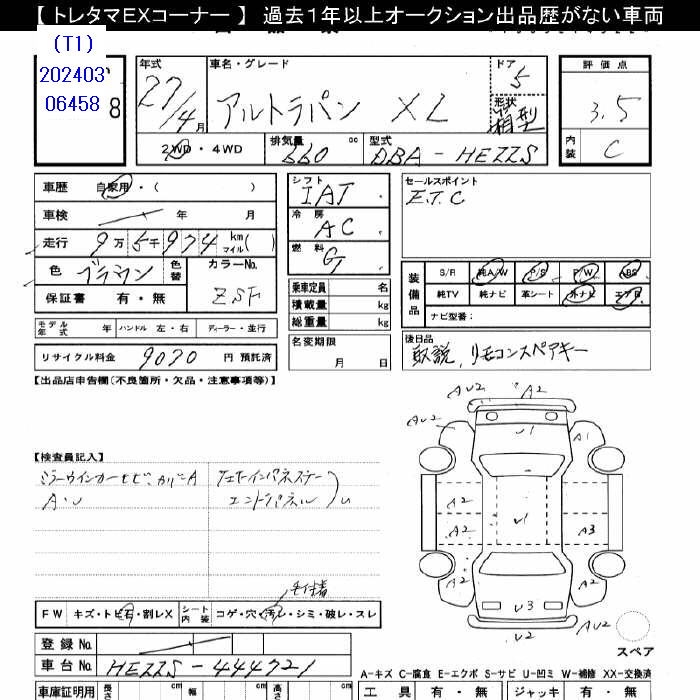 【 トレタマEXコーナー 】 過去1年以上オークション出品歴がない車両
(T1)
202403
06458
8
年式
27/4月
車名・グレード
アルトラパン XL
ドア
5
形状
箱型
2WD・4WD
排気量
660 cc
型式
DBA-HE22S
評価点
3.5
内装
C
車歴 自家用・( )
車検 年 月
走行 9万5千974 km マイル( )
色 ブラウン 色替
カラーNo.
ZSF
保証書 有・無
シフト
IAT
冷房
AC
燃料
G
セールスポイント
E.T.C
乗車定員 名
積載量 kg
総重量 kg
装備品
S/R 純A/W P/S P/W ABS
純TV 純ナビ 革シート 外ナビ エアB
ナビ型番:
モデル年式 年 ハンドル 左・右 ディーラー・並行
リサイクル料金 9070 円 預託済
名変期限
月 日
後日品
取説、リモコンスペアキー
【出品店申告欄(不良箇所・欠品・注意事項等)】
【検査員記入】
A・U
エンドパネル
F W キズ・トビ石・割レX シート内装 コゲ・穴・汚レ・シミ・破レ・スレ
登録 No.
車台 No. HE22S-444721
AU2
A2
AU2
AU2
U1
A1
A2
A2
U1
A3
A2
A2
U3
U2
A2
スペア
A-キズ C-腐食 E-エクボ S-サビ U-凹ミ W-補修 XX-交換済
車庫証明用 長さ cm 幅 cm 高さ cm
工具 有・無 ジャッキ 有・無